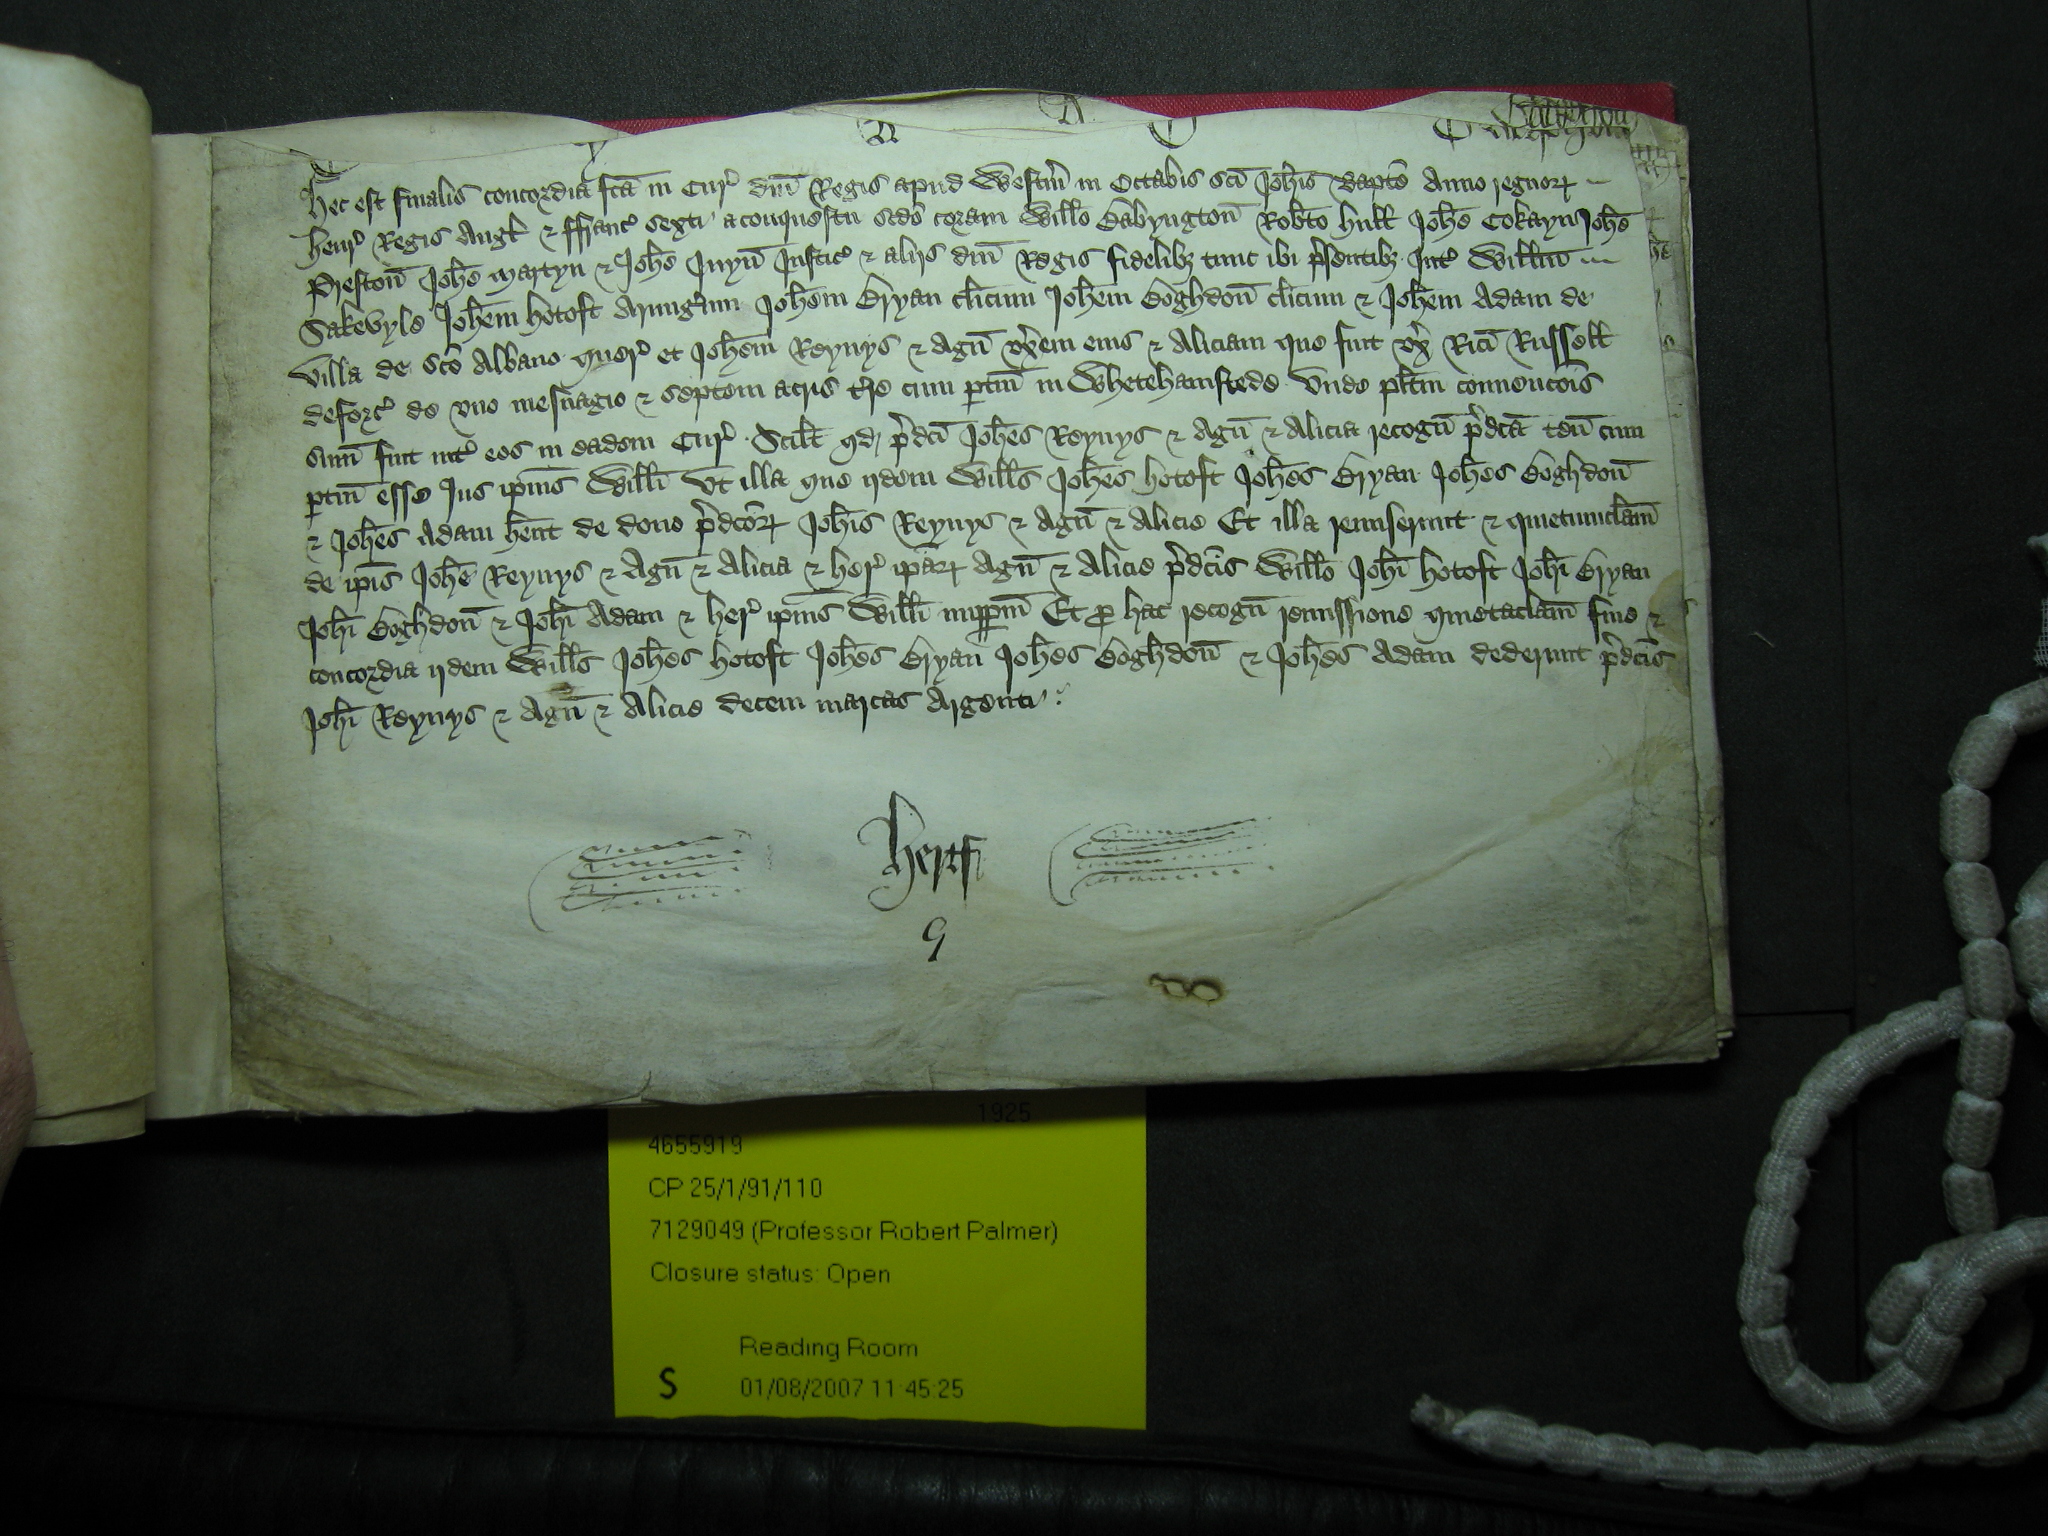 Hec est finalis concordia fc̄a in Cur̉ dn̄i Regis apud Westm̄ in Octabis sc̄i Joh̄is Bapt̄e Anno regnoꝝ
Henr̉ Regis Angl̄ & ffranc̉ sexti a conquestu scd̄o coram Will̄o Babyngton̄ Rob̄to Hull̄ Joh̄e Cokayn Joh̄e
Preston̄ Joh̄e Martyn & Joh̄e Juyn̄ Justic̉ & aliis dn̄i Regis fidelibꝫ tunc ibi p̉sentibꝫ Int̉ Will̄m
Sakevyle Joh̄em Hotoft Armig̉um Joh̄em Bryan cl̄icum Joh̄em Boghdon̄ cl̄icum & Joh̄em Adam de
villa de Sc̄o Albano quer̉ et Joh̄em Reynys & Agn̄ vx̉em eius & Aliciam que fuit vx̉ Ric̄i Russell̄
deforc̉ de vno mesuagio & septem acris t̉re cum ptin̄ in Whetehamstede Vnde pl̄itm conuencōis
sum̄ fuit int̉ eos in eadem Cur̉ Scil̄t qd p̉dc̄i Joh̄es Reynys & Agn̄ & Alicia recogn̄ p̉dc̄a ten̄ cum
ptin̄ esse Jus ip̄ius Will̄i Vt illa que iidem Will̄s Joh̄es Hotoft Joh̄es Bryan Joh̄es Boghdon̄
& Joh̄es Adam h̄ent de dono p̉dc̄oꝝ Joh̄is Reynys & Agn̄ & Alicie Et illa remiserunt & quietumclam̄
de ip̄is Joh̄e Reynys & Agn̄ & Alicia & her̉ ip̄aꝝ Agn̄ & Alicie p̉dc̄is Will̄o Joh̄i Hotoft Joh̄i Bryan
Joh̄i Boghdon̄ & Joh̄i Adam & her̉ ip̄ius Will̄i imppm̄ Et ꝓ hac recogn̄ remissione quietaclam̄ fine &
concordia iidem Will̄s Joh̄es Hotoft Joh̄es Bryan Joh̄es Boghdon̄ & Joh̄es Adam dederunt p̉dc̄is
Joh̄i Reynys & Agn̄ & Alicie decem marcas Argenti
Hertf
9
1925
4655919
CP 25/1/91/110
7129049 (Professor Robert Palmer)
Closure status: Open
Reading Room
S 01/08/2007 11:45:25